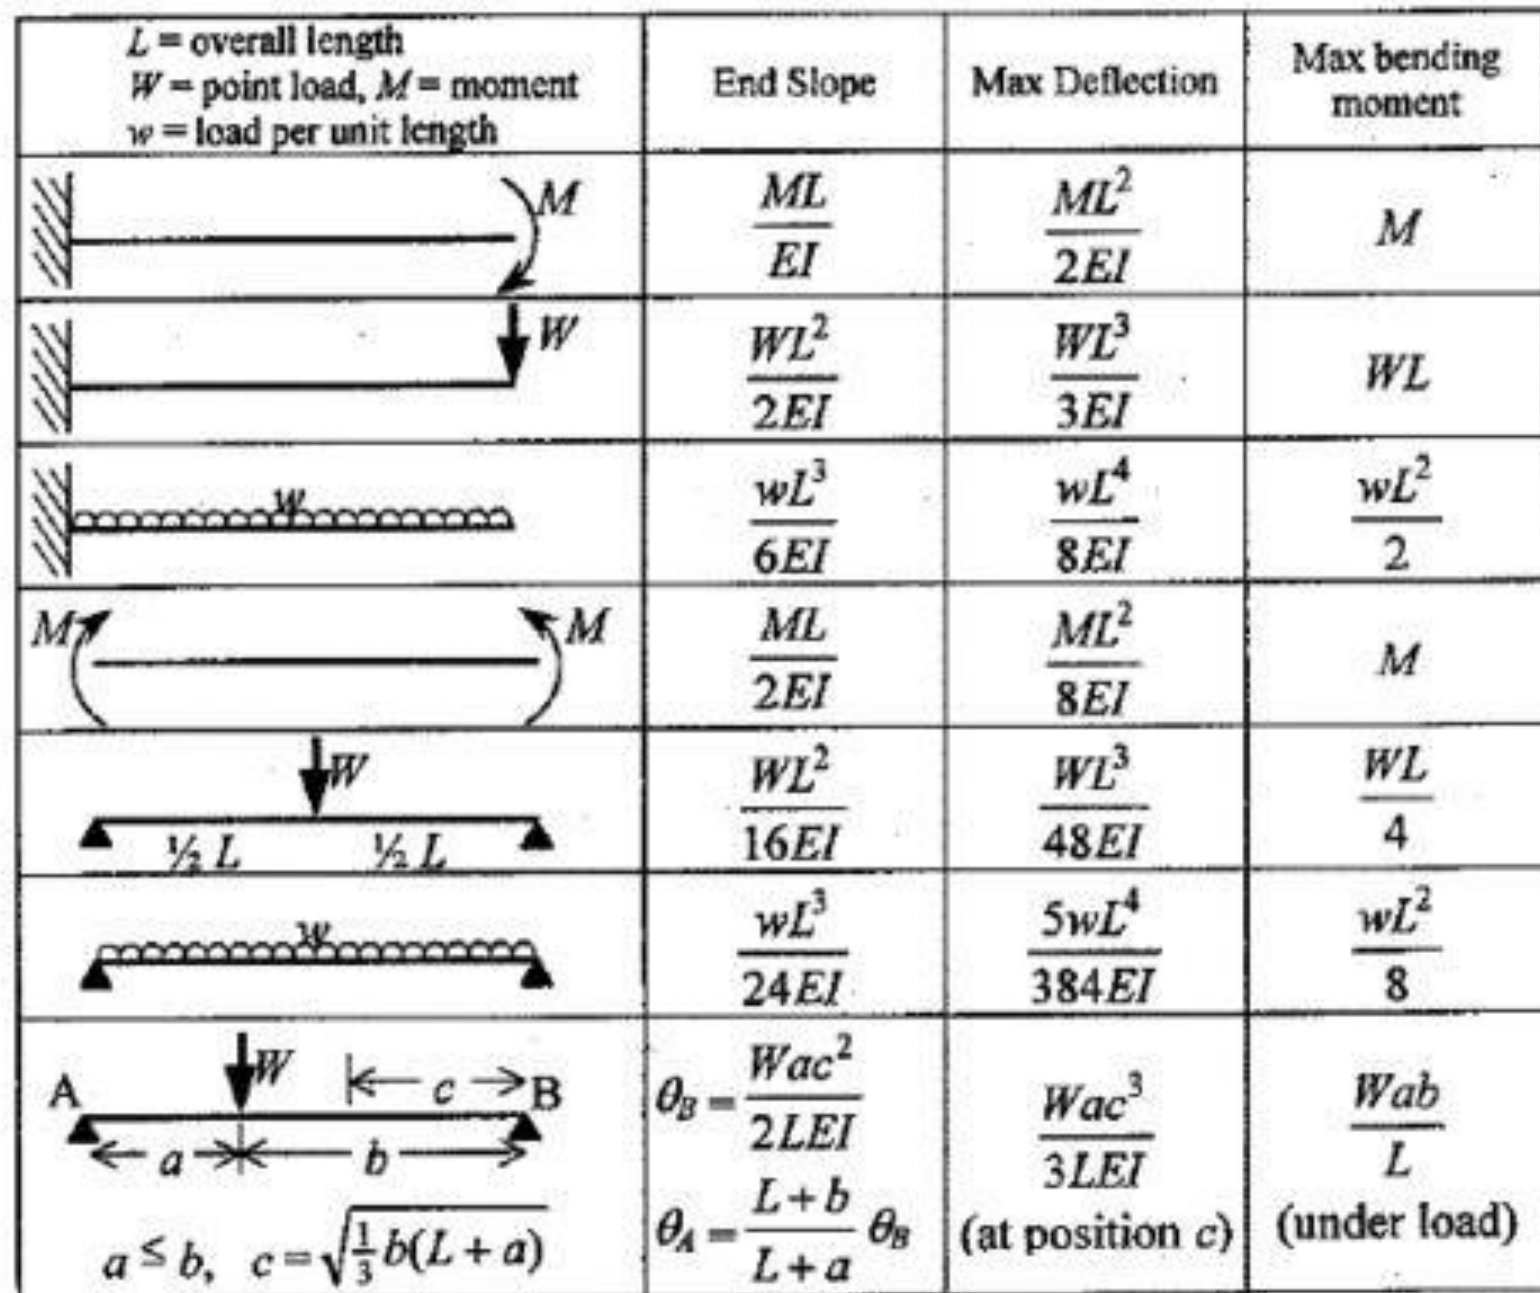 L = overall length
W = point load, M = moment
w = load per unit length
End Slope
Max Deflection
Max bending
moment
M
ML/EI
ML²/2EI
M
W
WL²/2EI
WL³/3EI
WL
w
wL³/6EI
wL⁴/8EI
wL²/2
M
M
ML/2EI
ML²/8EI
M
W
½ L
½ L
WL²/16EI
WL³/48EI
WL/4
w
wL³/24EI
5wL⁴/384EI
wL²/8
A
W
c
B
a
b
a ≤ b, c = √(⅓ b(L + a))
θB = Wac²/2LEI
θA = (L + b)/(L + a) θB
Wac³/3LEI
(at position c)
Wab/L
(under load)